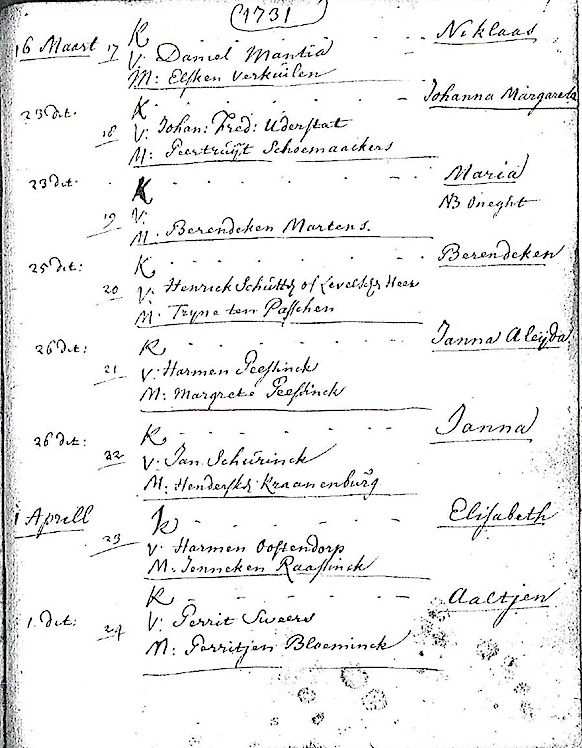 1731
16 Maart 17 K - - - - - Niklaas
V: Daniel Mantia
M: Elsken Verkuilen
23 dit. K - - - - - Johanna Margareta
18 V: Johan: Fred: Uderstat
M: Geertruijt Schoemaackers
23 dit. K - - - - - Maria
19 V: NB Oneght
M: Berendeken Martens.
25 dit: K - - - - - Berendeken
20 V: Henrick Schultz of Heer
M: Tryne ten Passchen
26 dit: K - - - - - Janna Aleijda
21 V: Harmen Geessinck
M: Margrete Geessinck
26 dit: K - - - - - Janna
22 V: Jan Schurinck
M: Kraanenburg
1 Aprell K - - - - - Elisabeth
23 V: Harmen Oostendorp
M: Jenneken Raassinck
1. dit: K - - - - - Aaltjen
24 V: Gerrit Sweers
M: Gerritjen Bloeminck